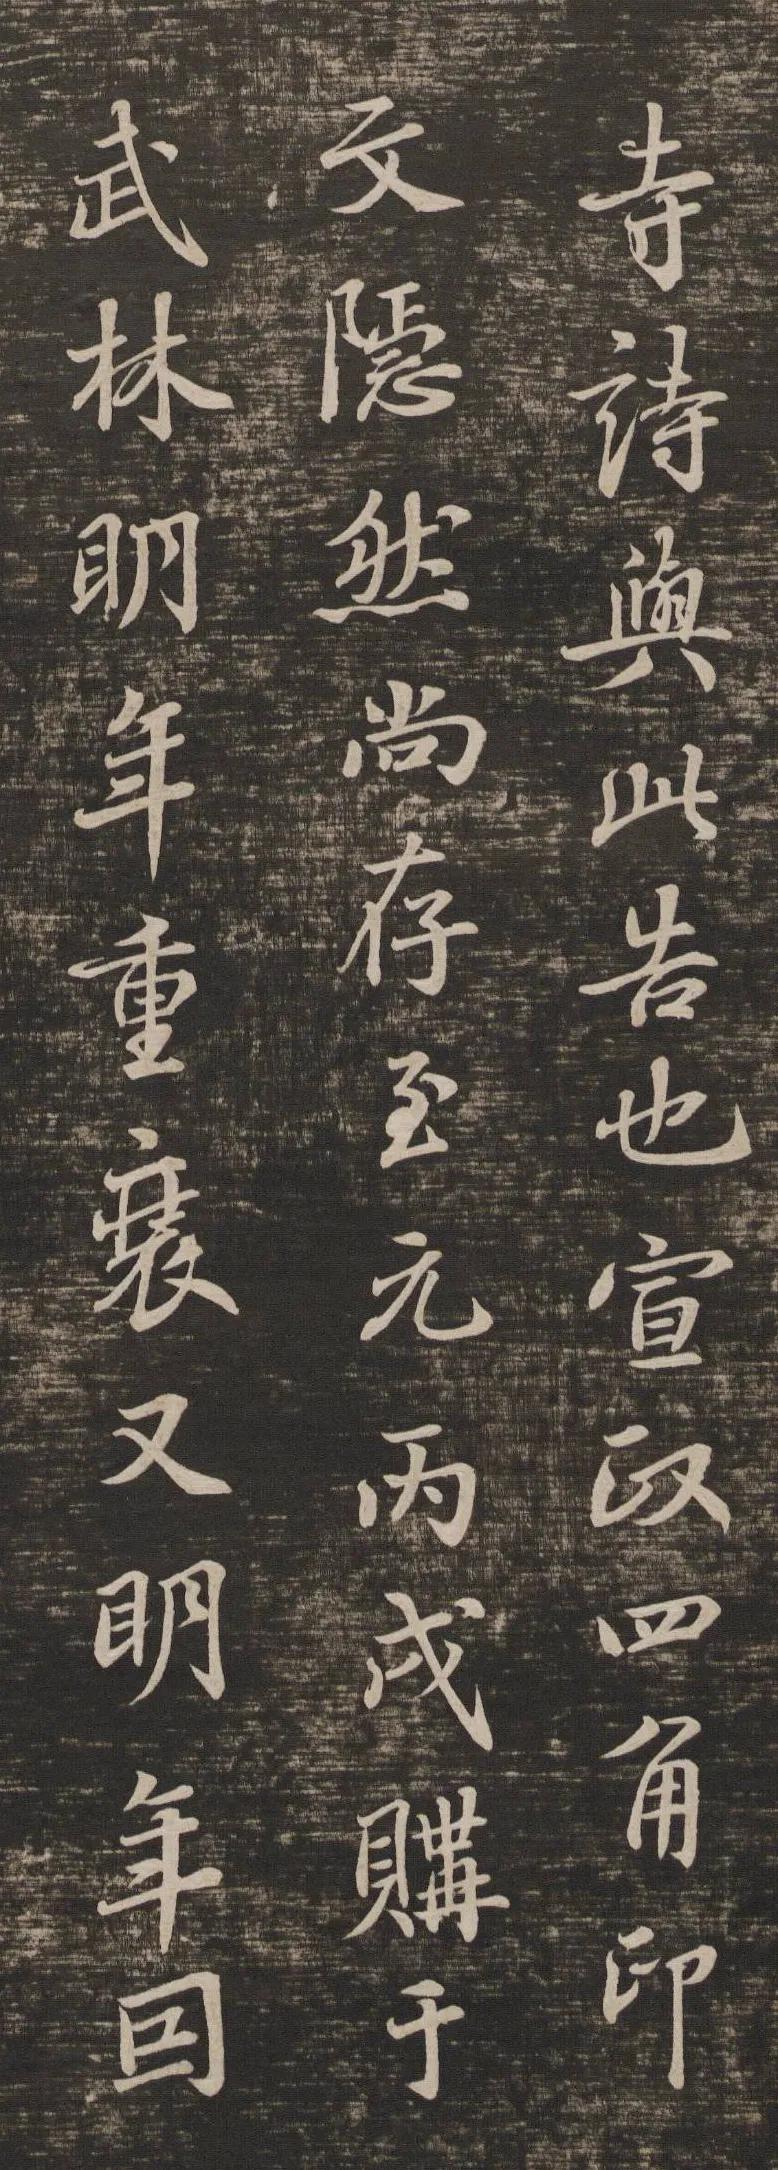 寺詩與此告也宣政四角印
文隱然尚存至元丙戌購于
武林明年重装又明年回